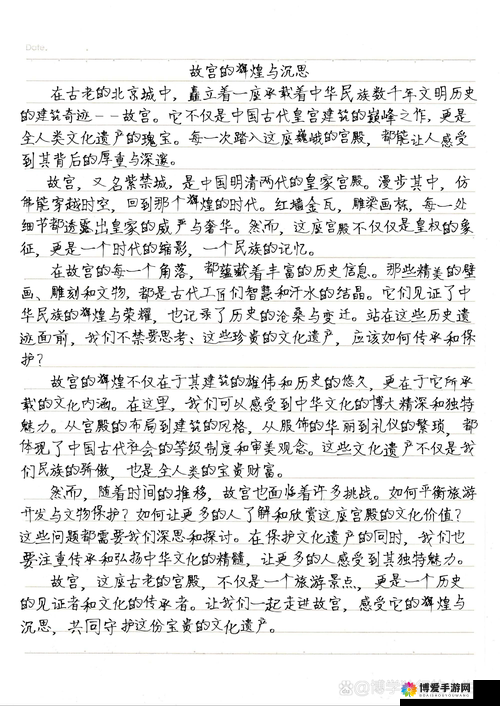 Date.
故宫的辉煌与沉思
在古老的北京城中，矗立着一座承载着中华民族数千年文明历史
的建筑奇迹--故宫。它不仅是中国古代皇宫建筑的巅峰之作，更是
全人类文化遗产的瑰宝。每一次踏入这座巍峨的宫殿，都能让人感受
到其背后的厚重与深邃。
故宫，又名紫禁城，是中国明清两代的皇家宫殿。漫步其中，仿
佛能穿越时空，回到那个辉煌的时代。红墙金瓦，雕梁画栋，每一处
细节都透露出皇家的威严与奢华。然而，这座宫殿不仅仅是皇权的象
征，更是一个时代的缩影，一个民族的记忆。
在故宫的每一个角落，都蕴藏着丰富的历史信息。那些精美的壁
画、雕刻和文物，都是古代工匠们智慧和汗水的结晶。它们见证了中
华民族的辉煌与荣耀，也记录了历史的沧桑与变迁。站在这些历史遗
迹面前，我们不禁要思考：这些珍贵的文化遗产，应该如何传承和保
护？
故宫的辉煌不仅在于其建筑的雄伟和历史的悠久，更在于它所承
载的文化内涵。在这里，我们可以感受到中华文化的博大精深和独特
魅力。从宫殿的布局到建筑的风格，从服饰的华丽到礼仪的繁琐，都
体现了中国古代社会的等级制度和审美观念。这些文化遗产不仅是我
们民族的骄傲，也是全人类的宝贵财富。
然而，随着时间的推移，故宫也面临着许多挑战。如何平衡旅游
开发与文物保护？如何让更多的人了解和欣赏这座宫殿的文化价值？
这些问题都需要我们深思和探讨。在保护文化遗产的同时，我们也
要注重传承和弘扬中华文化的精髓，让更多的人感受到其独特魅力。
故宫，这座古老的宫殿，不仅是一个旅游景点，更是一个历史
的见证者和文化的传承者。让我们一起走进故宫，感受它的辉煌与
沉思，共同守护这份宝贵的文化遗产。
博爱手游网